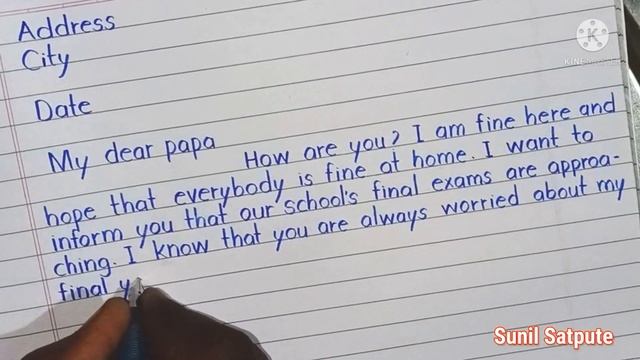 Address
City
Date
My dear papa
How are you? I am fine here and
hope that everybody is fine at home. I want to
inform you that our school's final exams are approa-
ching. I know that you are always worried about my
final y
Sunil Satpute